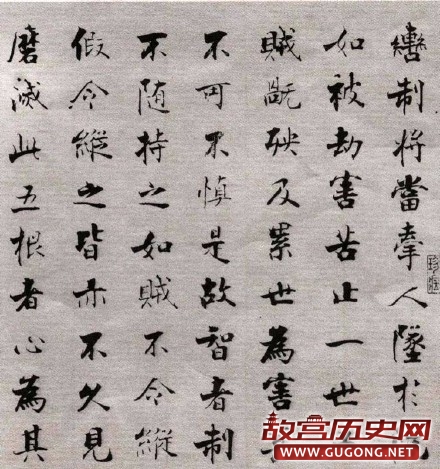 轡制將當牽人墜於
如被劫害苦止一世
賊旤殃及累世為害
不可不慎是故智者制
不随持之如賊不令縱
假令縱之皆亦不久見
磨滅此五根者心為其
故宫历史网
WWW.GUGONG.NET